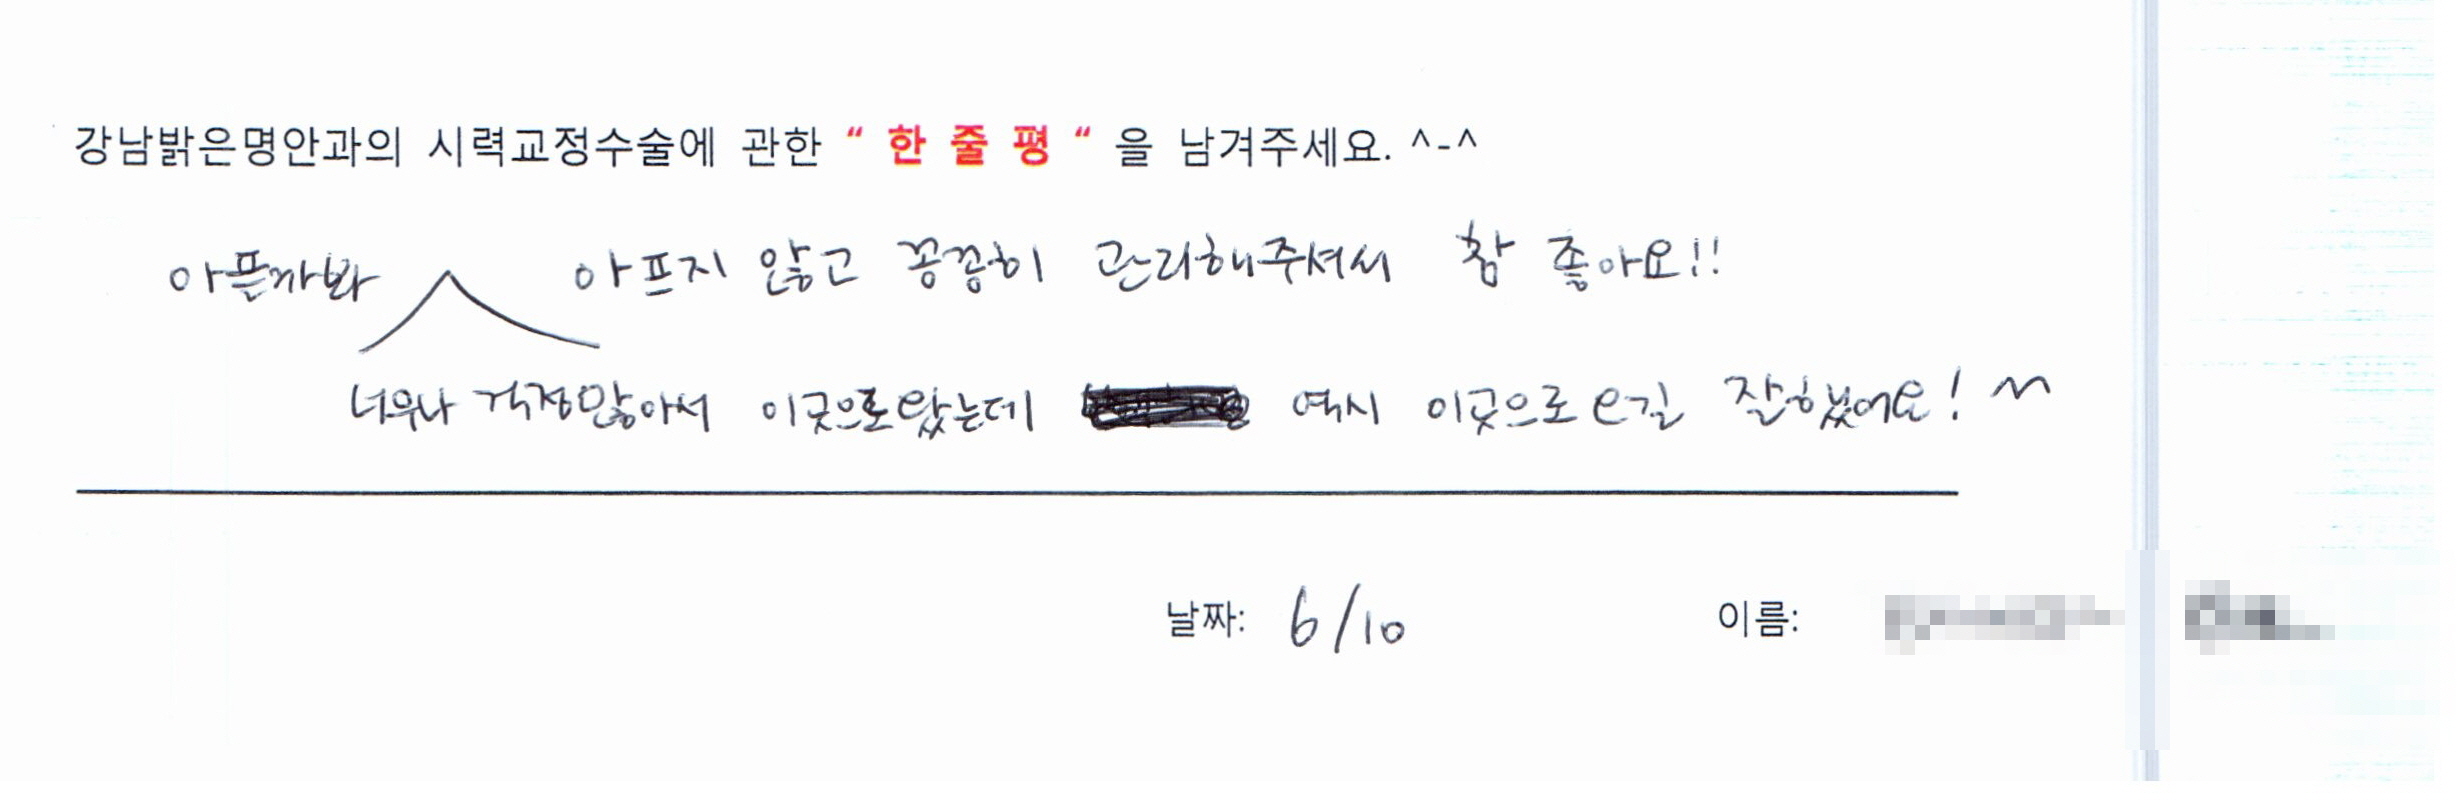 강남밝은명안과의 시력교정수술에 관한 “ 한 줄 평 “ 을 남겨주세요. ^-^
아픈까봐 아프지 않고 꼼꼼히 관리해주셔서 참 좋아요!!
너무나 걱정많아서 이곳으로 왔는데 역시 이곳으로 오길 잘했어요! ^^
날짜: 6/10 이름: